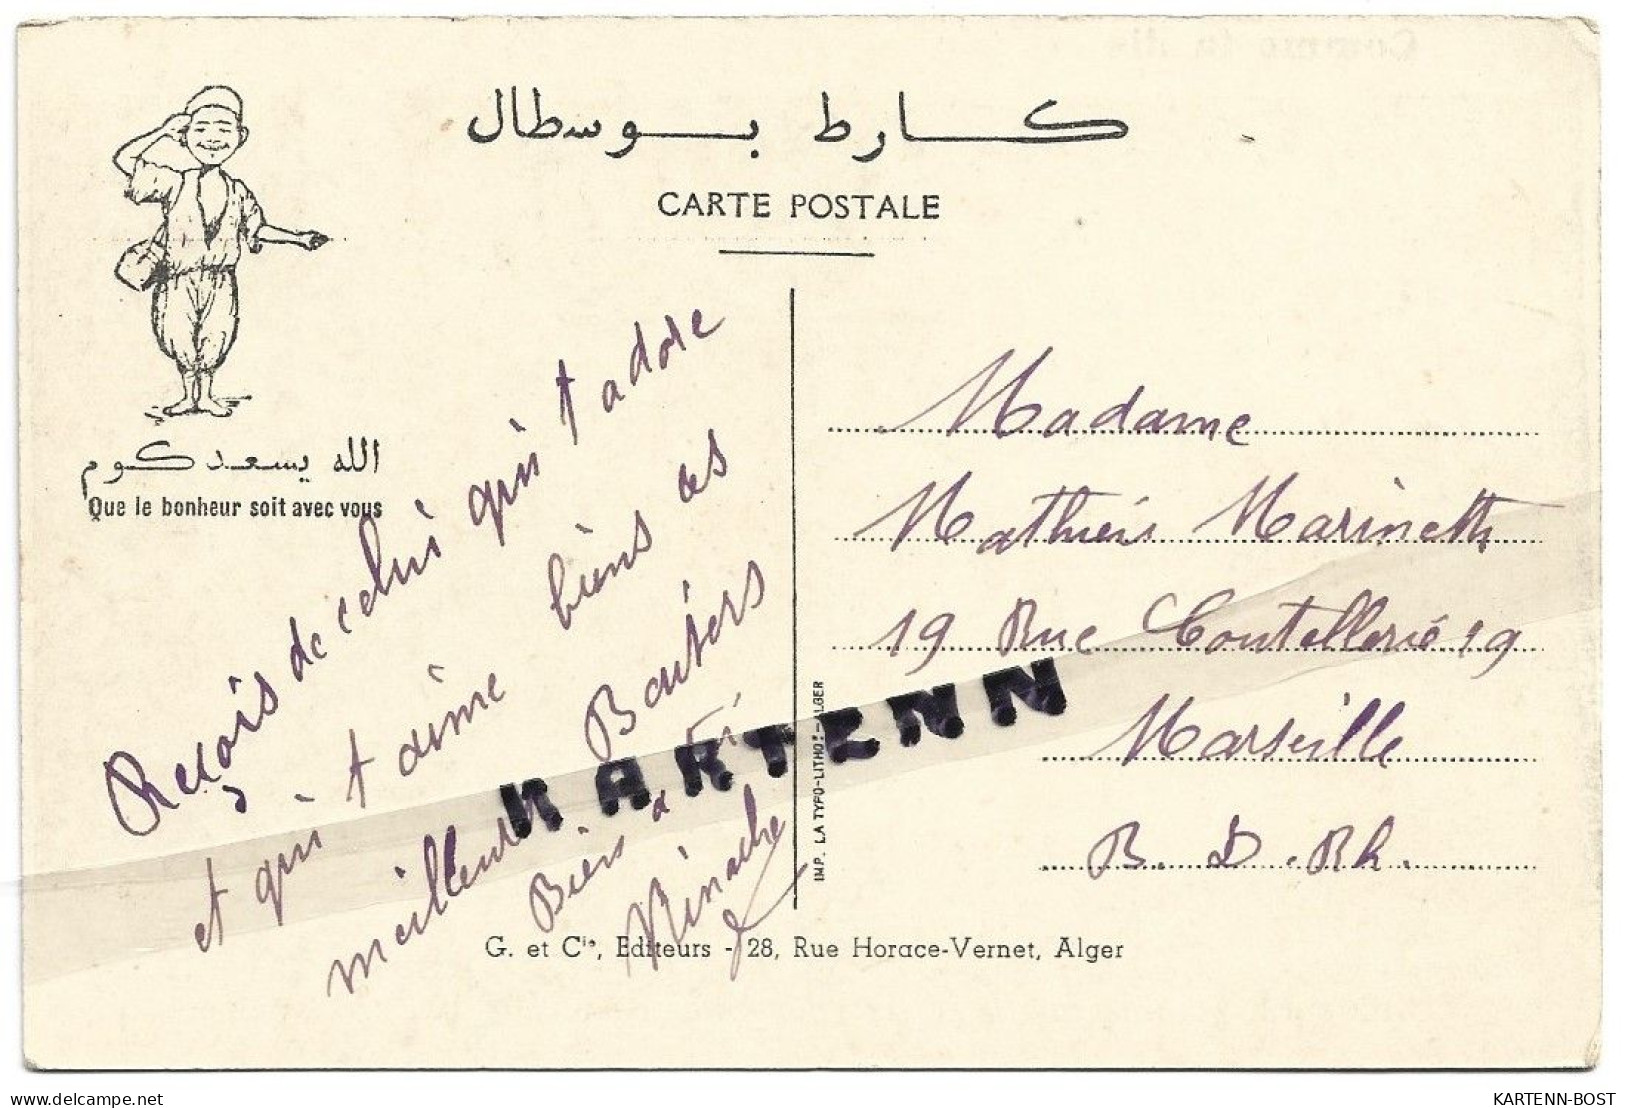 كارط بوسطال
CARTE POSTALE
الله يسعدكوم
Que le bonheur soit avec vous
Reçois de celui qui t adore
et qui t aime biens ses
meilleurs Baisers
Biens a toi
Ninache
Madame
Mathieu Marinette
19 Rue Coutellerie 19
Marseille
B. D. Rh.
KARTENN
IMP. LA TYPO-LITHO. - ALGER
G. et Cie, Editeurs - 28, Rue Horace-Vernet, Alger
delcampe.net
KARTENN-BOST